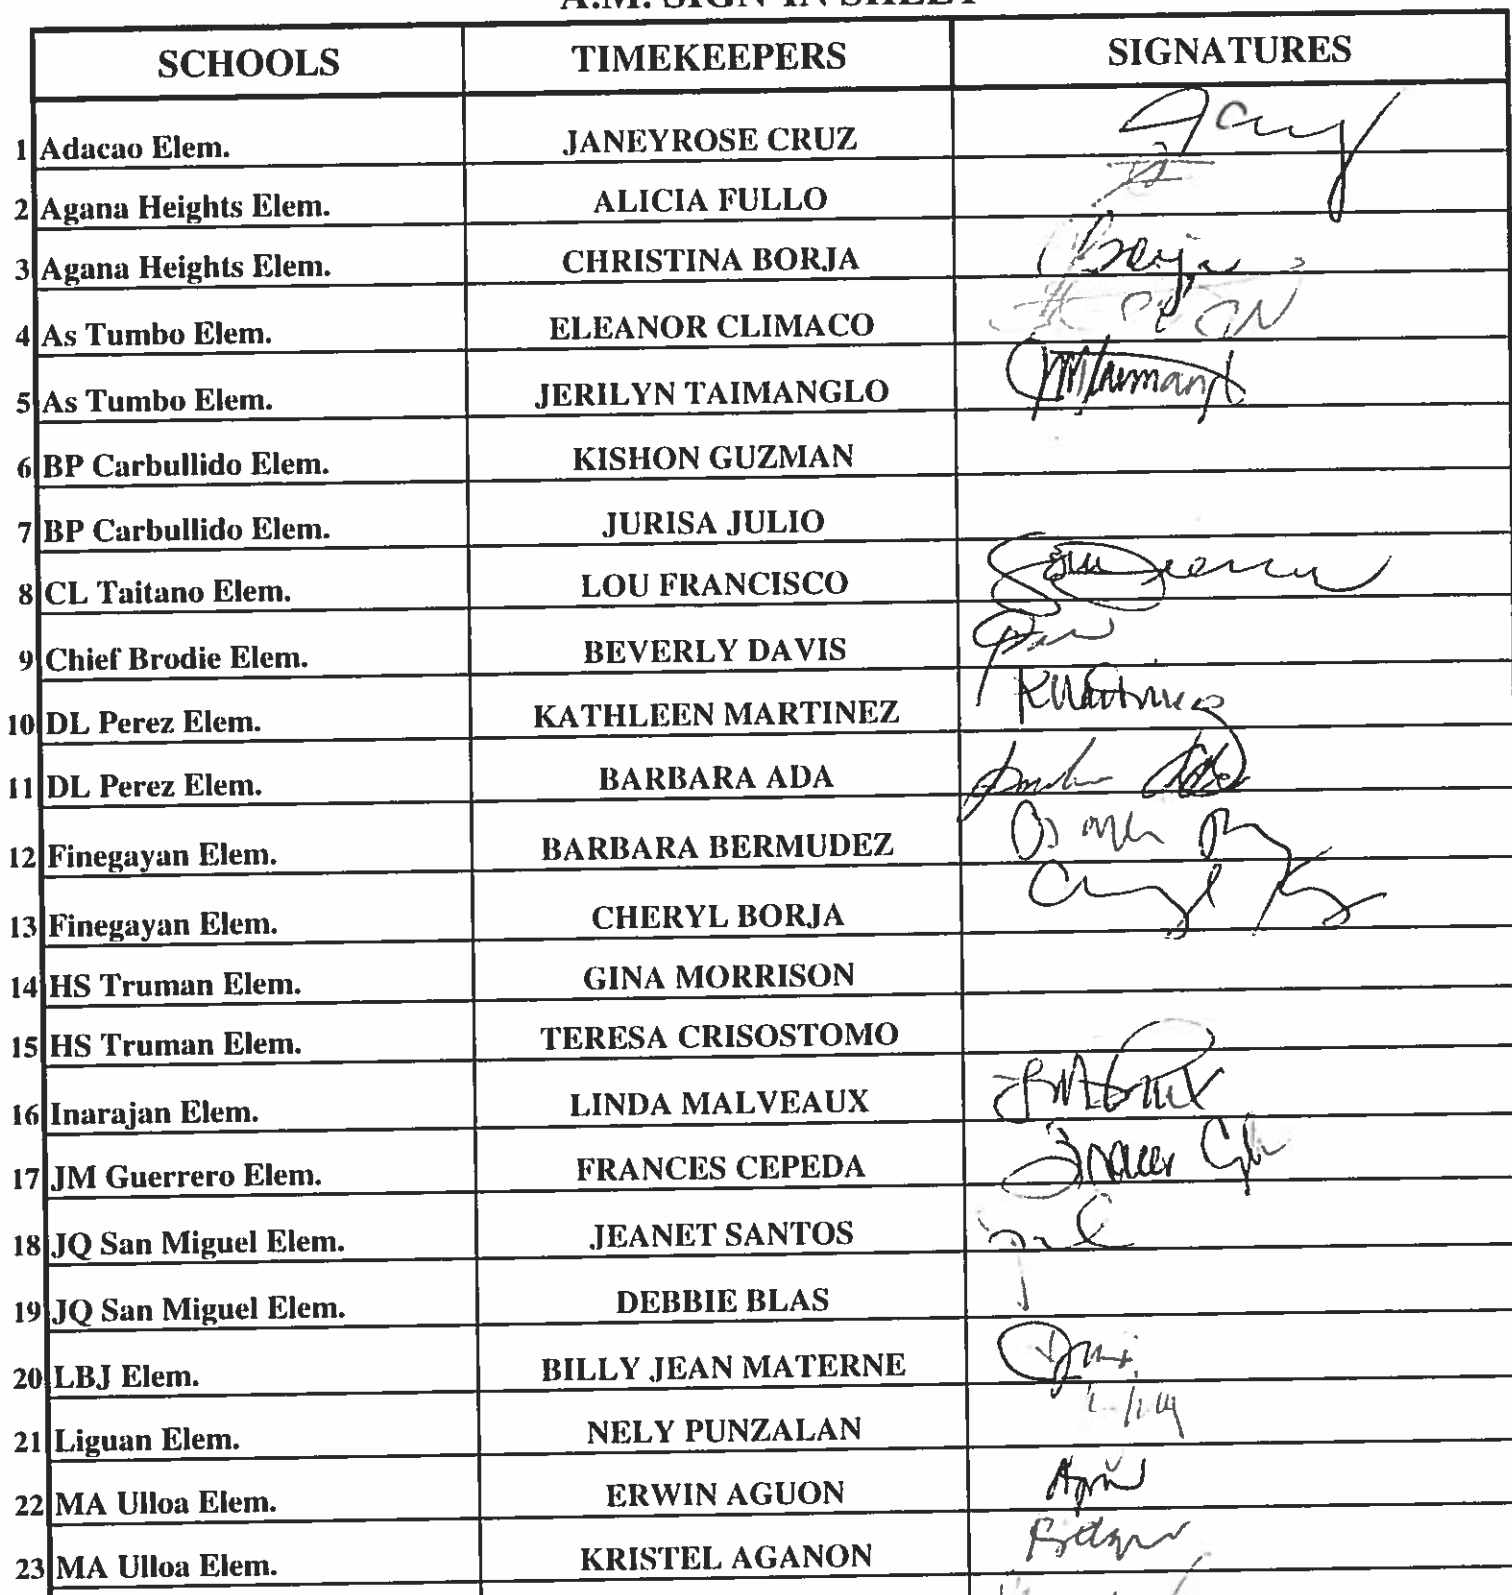 A.M. SIGN-IN SHEET
SCHOOLS TIMEKEEPERS SIGNATURES
1 Adacao Elem. JANEYROSE CRUZ
2 Agana Heights Elem. ALICIA FULLO
3 Agana Heights Elem. CHRISTINA BORJA Borja
4 As Tumbo Elem. ELEANOR CLIMACO
5 As Tumbo Elem. JERILYN TAIMANGLO
6 BP Carbullido Elem. KISHON GUZMAN
7 BP Carbullido Elem. JURISA JULIO
8 CL Taitano Elem. LOU FRANCISCO
9 Chief Brodie Elem. BEVERLY DAVIS
10 DL Perez Elem. KATHLEEN MARTINEZ KMartinez
11 DL Perez Elem. BARBARA ADA
12 Finegayan Elem. BARBARA BERMUDEZ
13 Finegayan Elem. CHERYL BORJA
14 HS Truman Elem. GINA MORRISON
15 HS Truman Elem. TERESA CRISOSTOMO
16 Inarajan Elem. LINDA MALVEAUX
17 JM Guerrero Elem. FRANCES CEPEDA
18 JQ San Miguel Elem. JEANET SANTOS
19 JQ San Miguel Elem. DEBBIE BLAS
20 LBJ Elem. BILLY JEAN MATERNE
21 Liguan Elem. NELY PUNZALAN
22 MA Ulloa Elem. ERWIN AGUON
23 MA Ulloa Elem. KRISTEL AGANON